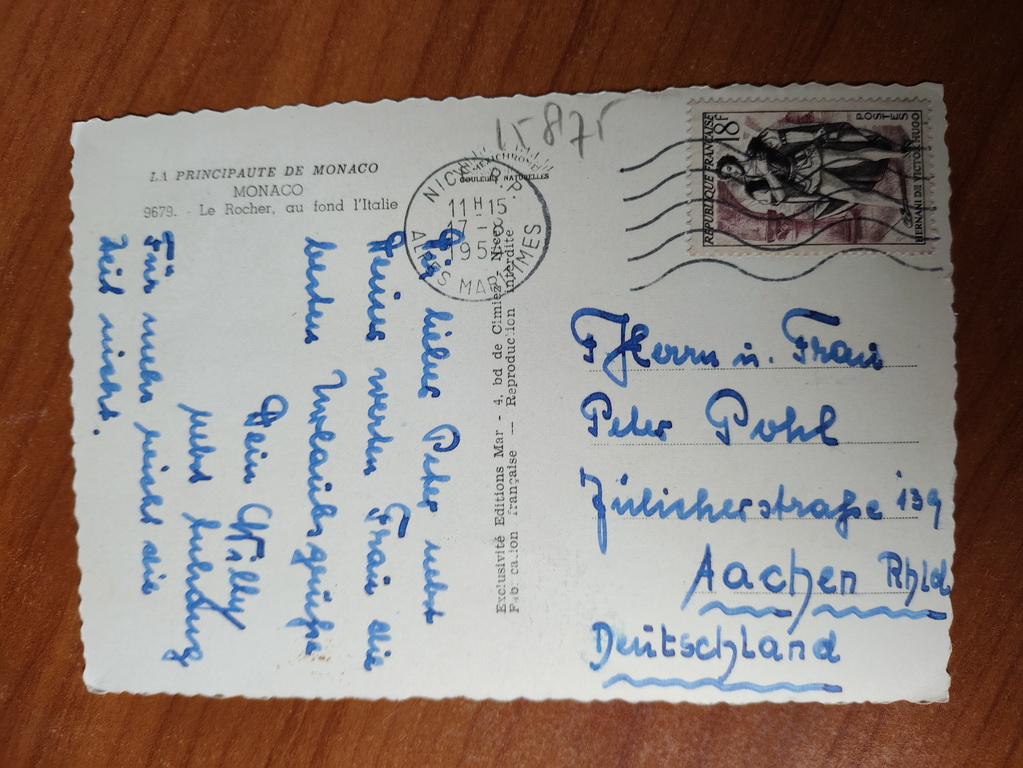 LA PRINCIPAUTE DE MONACO
MONACO
9679. - Le Rocher, au fond l'Italie
COULEURS NATURELLES
15875
NICE R.P.
11H15
195
ALPES MARITIMES
REPUBLIQUE FRANÇAISE
18F
POSTES
HERNANI DE VICTOR HUGO
Exclusivité Editions Mar - 4, bd de Cimiez, Nice
Fabrication française — Reproduction interdite
Dir lieber Peter nebst
Deiner werten Frau die
besten Urlaubsgrüße
Dein Willy
nebst
Für mehr reicht die
Zeit nicht.
Herrn u. Frau
Peter Pohl
Jülicherstraße 139
Aachen Rhld
Deutschland